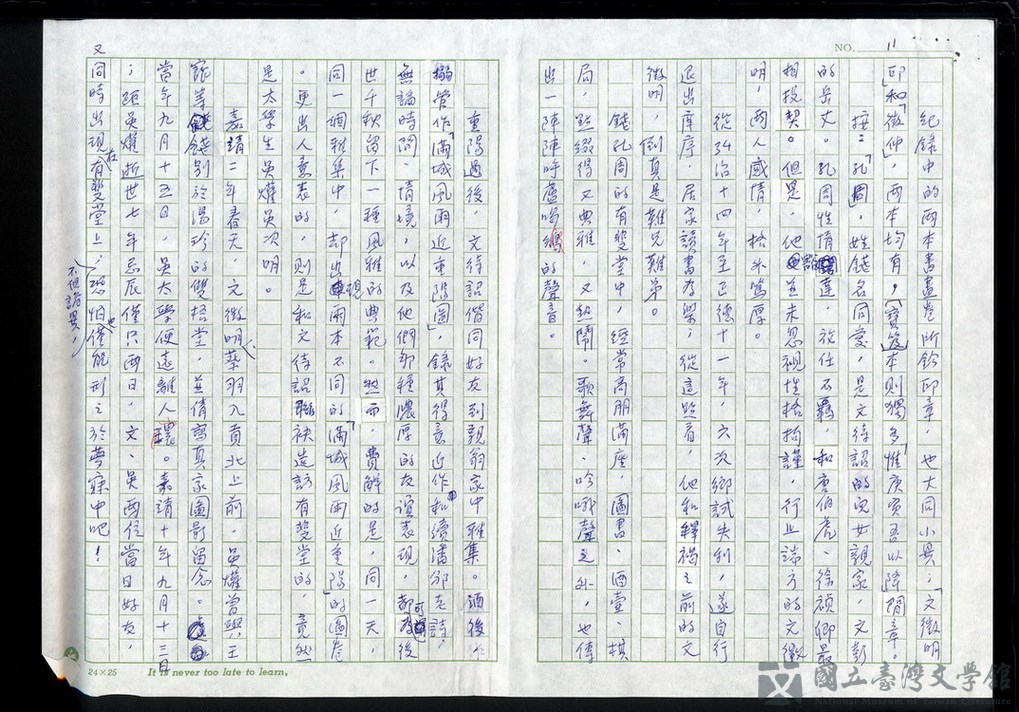 NO. 11
紀錄中的兩本書畫卷所鈐印章，也大同小異；「文徵明
印」「和」「徵仲」，兩本均有，「寶笈」本則獨多「惟庚寅吾以降」閒章。
按：「孔周」，姓錢名同愛，是文待詔的兒女親家，文彭
的岳丈。孔周性情豁達，放任不羈，和唐伯虎、徐禎卿最
相投契。但是，他並未忽視性格拘謹，行止端方的文徵
明，兩人感情，格外篤厚。
從弘治十四年至正德十一年，六次鄉試失利，遂自行
退出庠序，居家讀書為樂；從這點看，他和釋褐之前的文
徵明，倒真是難兄難弟。
錢孔周的有斐堂中，經常高朋滿座，圖書、酒壺、棋
局，點綴得又典雅，又熱鬧。歌舞聲、吟哦聲之外，也傳
出一陣陣呼盧喝雉的聲音。
重陽過後，文待詔偕同好友到親翁家中雅集。酒後，
搦管作「滿城風雨近重陽圖」，錄其得意近作和續潘邠老詩，
無論時間、情境，以及他們那種濃厚的友誼表現，都可為後
世千秋留下一種風雅的典範。然而，費解的是，同一天，
同一個雅集中，却出現兩本不同的「滿城風雨近重陽」的圖卷
。更出人意表的，則是和文待詔聯袂造訪有斐堂的，竟然
是太學生吳爟吳次明。
嘉靖二年春天，文徵明、蔡羽入貢北上前，吳爟曾與王
寵等餞別於湯珍的雙梧堂，並倩寫真家圖影留念。
當年九月十五日，吳太學便遠離人環。嘉靖十年九月十三日
；距吳爟逝世七年忌辰僅只兩日，文、吳兩位當日好友，
又同時出現在有斐堂上；不但詭異，恐怕也僅能形之於夢寐中吧！
24×25 It is never too late to learn,
國立臺灣文學館
National Museum of Taiwan Literature